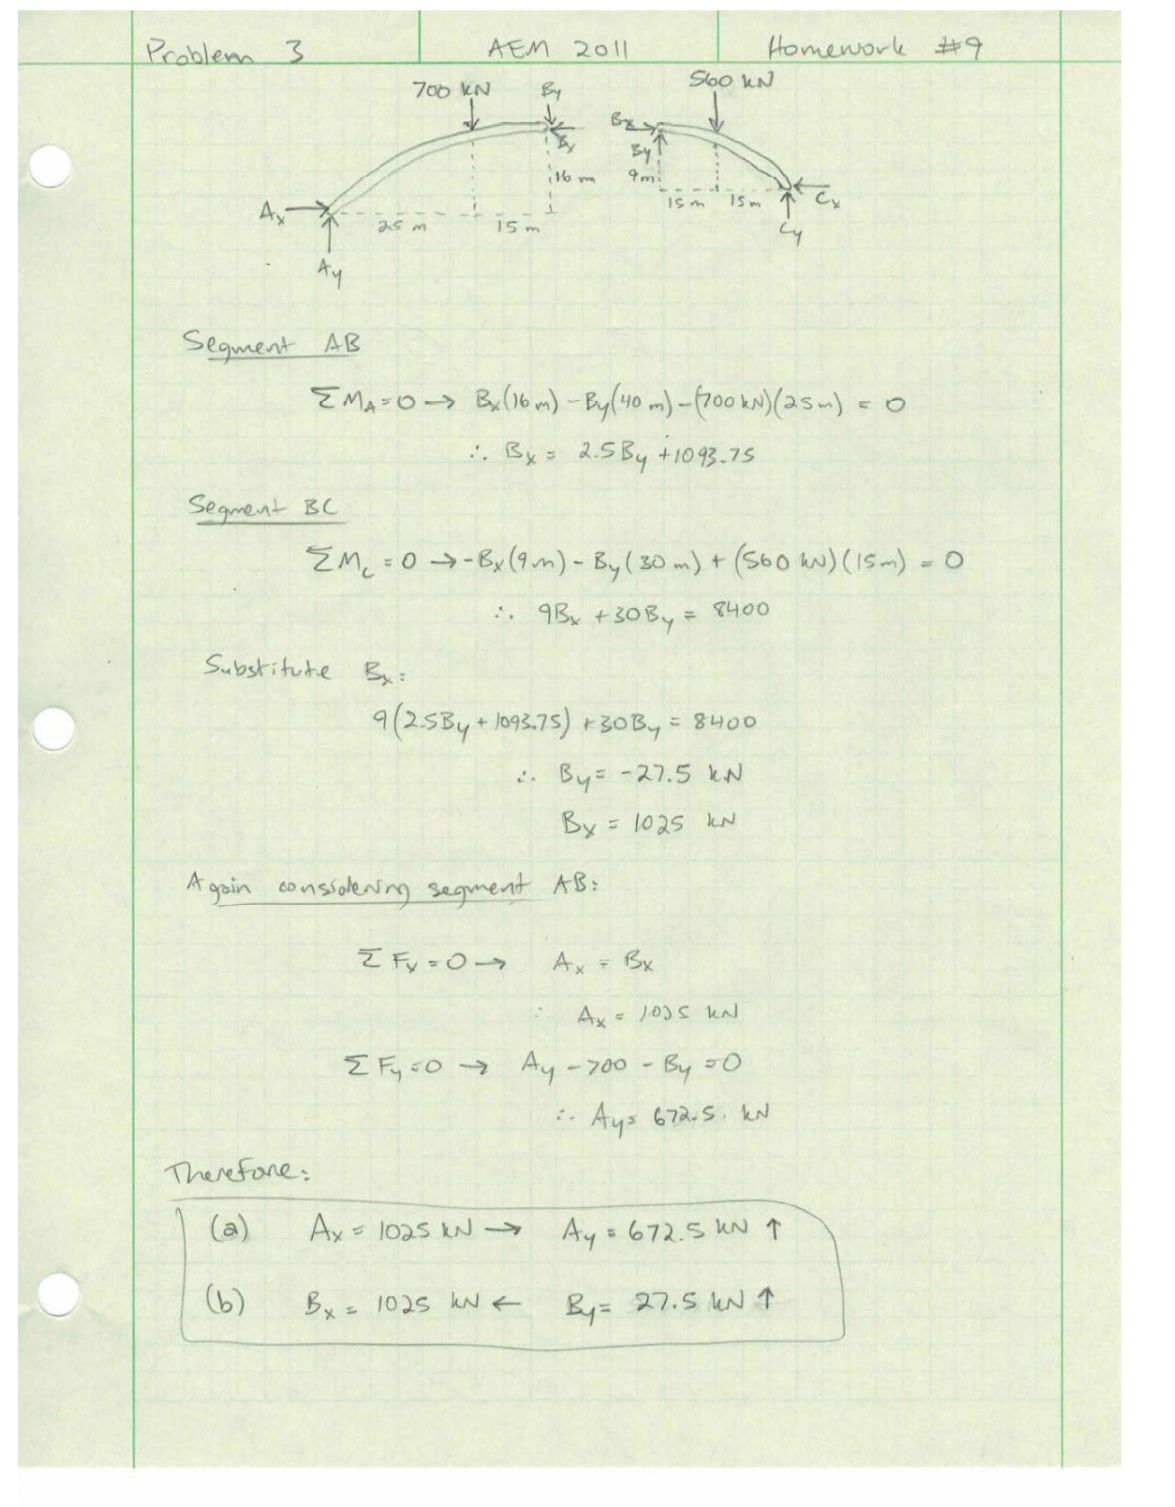 Problem 3 AEM 2011 Homework #9
700 kN By 560 kN
Bx
Bx By
16 m 9m
15 m 15m Cx
Ax 25 m 15 m Cy
Ay
Segment AB
ΣM_A=0 → Bx(16 m) - By(40 m) - (700 kN)(25m) = 0
∴ Bx = 2.5By +1093.75
Segment BC
ΣM_c = 0 → -Bx(9m) - By(30 m) + (560 kN)(15m) = 0
∴ 9Bx +30By = 8400
Substitute Bx:
9(2.5By + 1093.75) +30By = 8400
∴ By = -27.5 kN
Bx = 1025 kN
Again considering segment AB:
ΣFx = 0 → Ax = Bx
∴ Ax = 1025 kN
ΣFy = 0 → Ay - 700 - By = 0
∴ Ay = 672.5 kN
Therefore:
(a) Ax = 1025 kN → Ay = 672.5 kN ↑
(b) Bx = 1025 kN ← By = 27.5 kN ↑